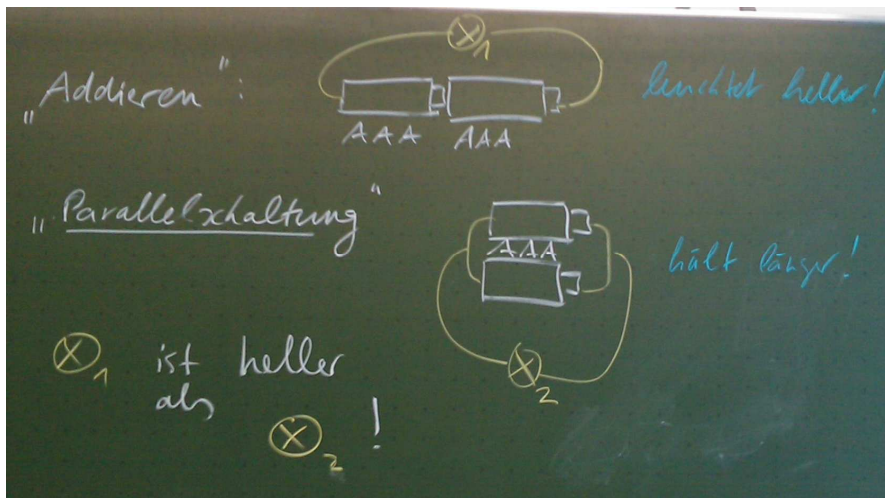 „Addieren“:
1
leuchtet heller!
AAA AAA
„Parallelschaltung“
AAA
hält länger!
2
1 ist heller
als
2 !